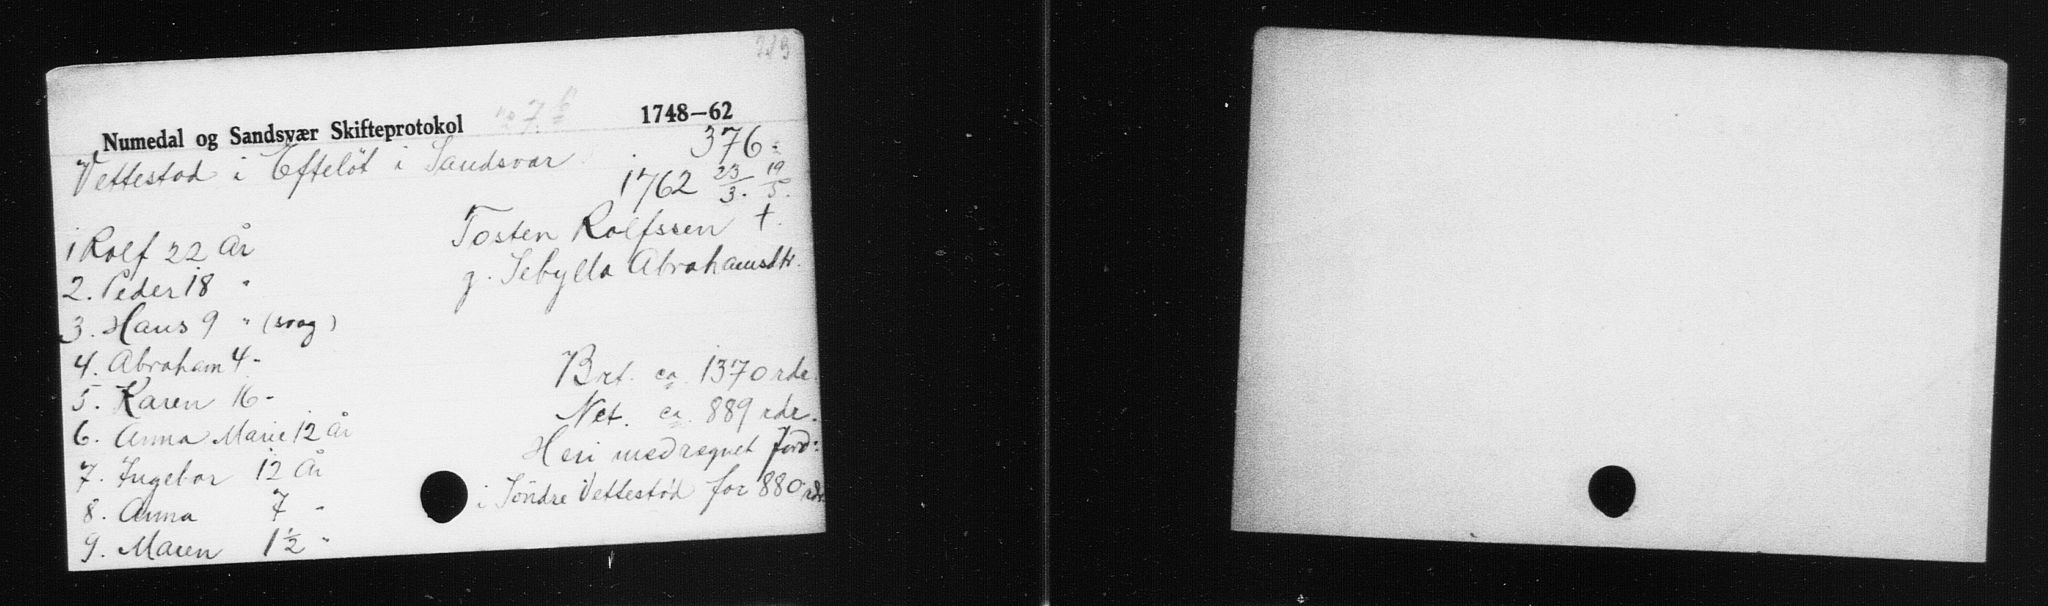 Numedal og Sandsvær Skifteprotokol 1748-62
Vettestad i Efteløt i Sandsvær 376
1762 23/3. 19/5.
Tosten Rolfssen †.
g. Sebylla Abrahamsdtr.
1 Rolf 22 År
2. Peder 18 "
3. Hans 9 " (svag)
4. Abraham 4 -
5. Karen 16 -
6. Anna Marie 12 År
7. Ingebor 12 År
8. Anna 7 "
9. Maren 1½ "
Brt. ca. 1370 rdr.
Net. ca. 889 rdr.
Heri medregnet Jord:
i Söndre Vettestød for 880 rdr